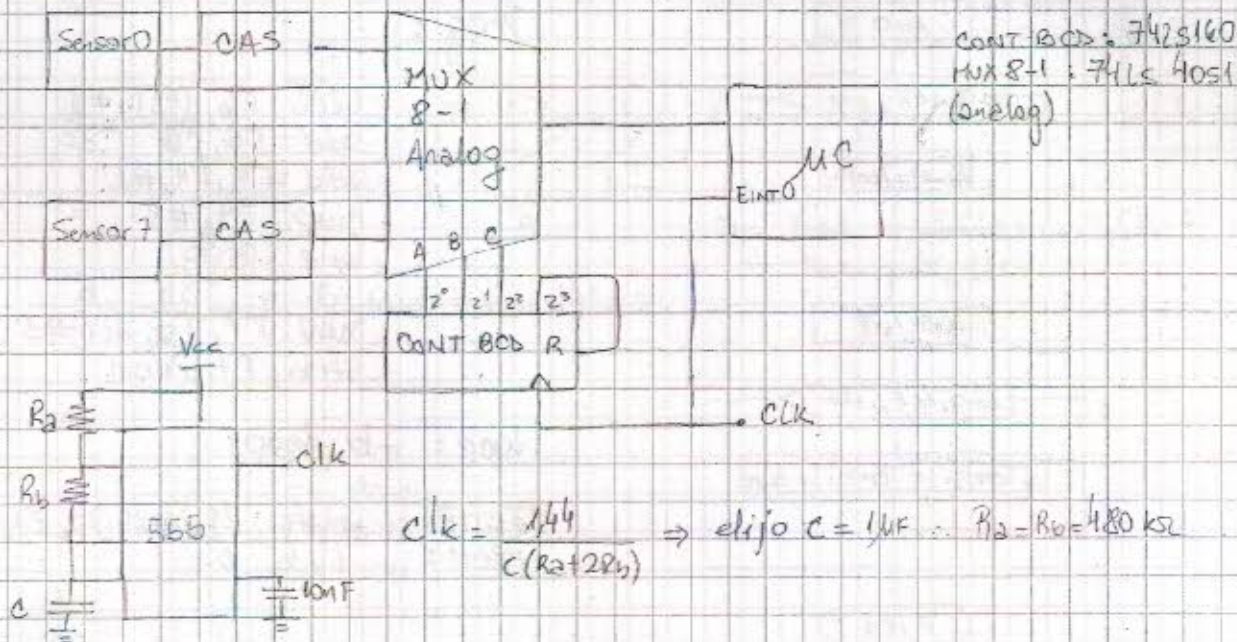 Sensor 0
CAS
MUX
8-1
Analog
CONT BCD: 74LS160
MUX 8-1: 74LS 4051
(analog)
μC
EINT0
Sensor 7
CAS
A B C
2⁰ 2¹ 2² 2³
CONT BCD R
Vcc
Ra
CLK
clk
Rb
555
clk = 1,44 / C(Ra+2Rb) ⇒ elijo C = 1μF ∴ Ra=Rb=480 kΩ
C
10nF